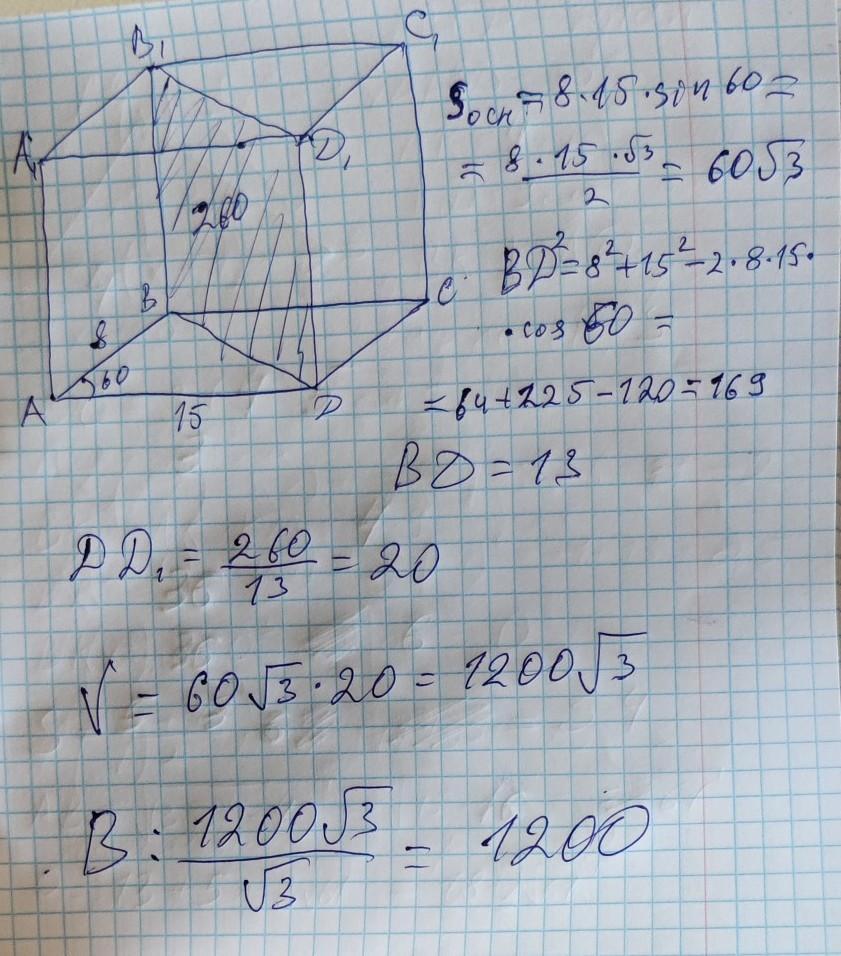 B₁
C₁
A₁
D₁
260
B
C
8
60
A
15
D
Sосн = 8·15·sin 60 =
= 8·15·√3/2 = 60√3
BD² = 8² + 15² - 2·8·15·
·cos 60 =
= 64 + 225 - 120 = 169
BD = 13
DD₁ = 260/13 = 20
V = 60√3·20 = 1200√3
В: 1200√3/√3 = 1200